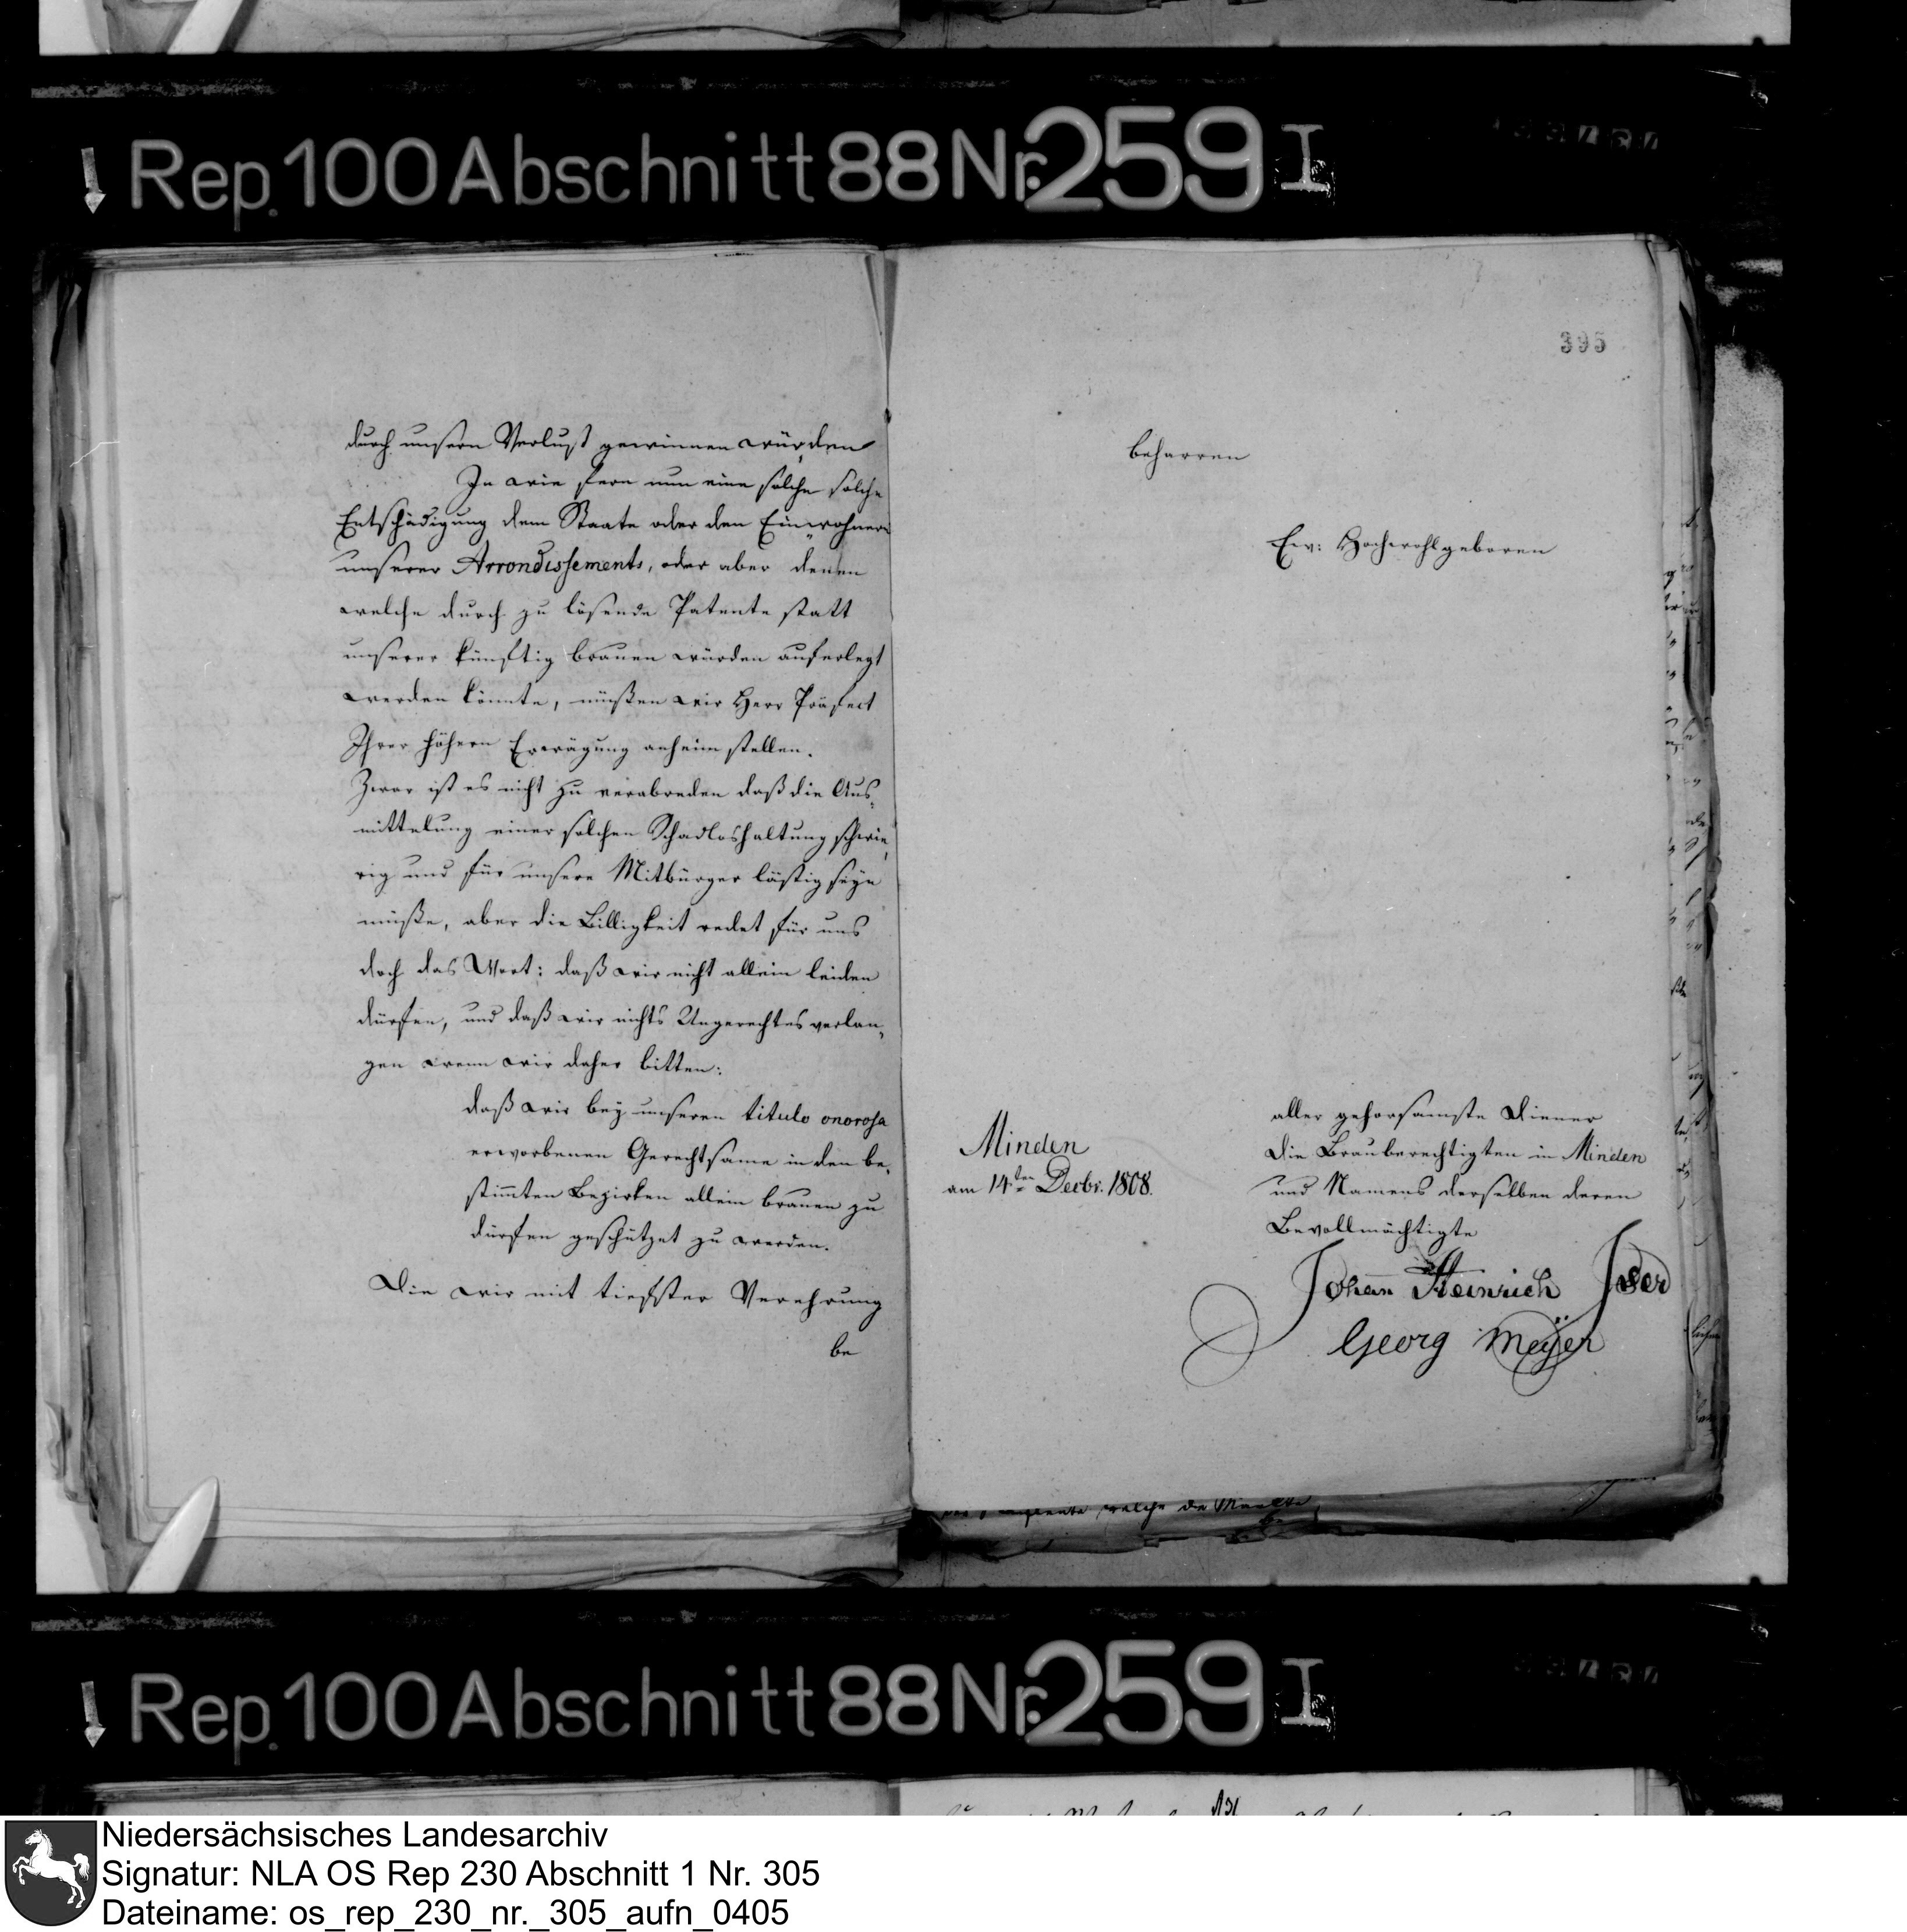 Rep. 100 Abschnitt 88 Nr. 259 I
durch unsern Verlust gewinnen würden
In wie fern nun eine solche solche
Entschädigung dem Staate oder den Einwohnern
unserer Arrondissements, oder aber denen
welche durch zu lösende Patente statt
unserer künftig brauen würden auferlegt
werden könnte, müßen wir Herr Präfect
Ihrer höhern Erwägung anheim stellen.
Zwar ist es nicht zu verabreden daß die Aus-
mittelung einer solchen Schadloshaltung schwie-
rig und für unsere Mitbürger lästig seyn
müße, aber die Billigkeit redet für uns
doch das Wort: daß wir nicht allein leiden
dürfen, und daß wir nichts Ungerechtes verlan-
gen wenn wir daher bitten:
daß wir bey unseren titulo onorosa
erworbenen Gerechtsame in den be-
stimten Bezirken allein brauen zu
dürfen geschützet zu werden.
Die wir mit tiefster Verehrung
be
395
beharren
Ew: Hochwohlgeboren
Minden
am 14ten Decbr. 1808.
aller gehorsamste Diener
Die Brauberechtigten in Minden
und Namens derselben deren
Bevollmächtigte
Johan Heinrich
Georg Meÿer
welche die
Rep. 100 Abschnitt 88 Nr. 259 I
Niedersächsisches Landesarchiv
Signatur: NLA OS Rep 230 Abschnitt 1 Nr. 305
Dateiname: os_rep_230_nr._305_aufn_0405